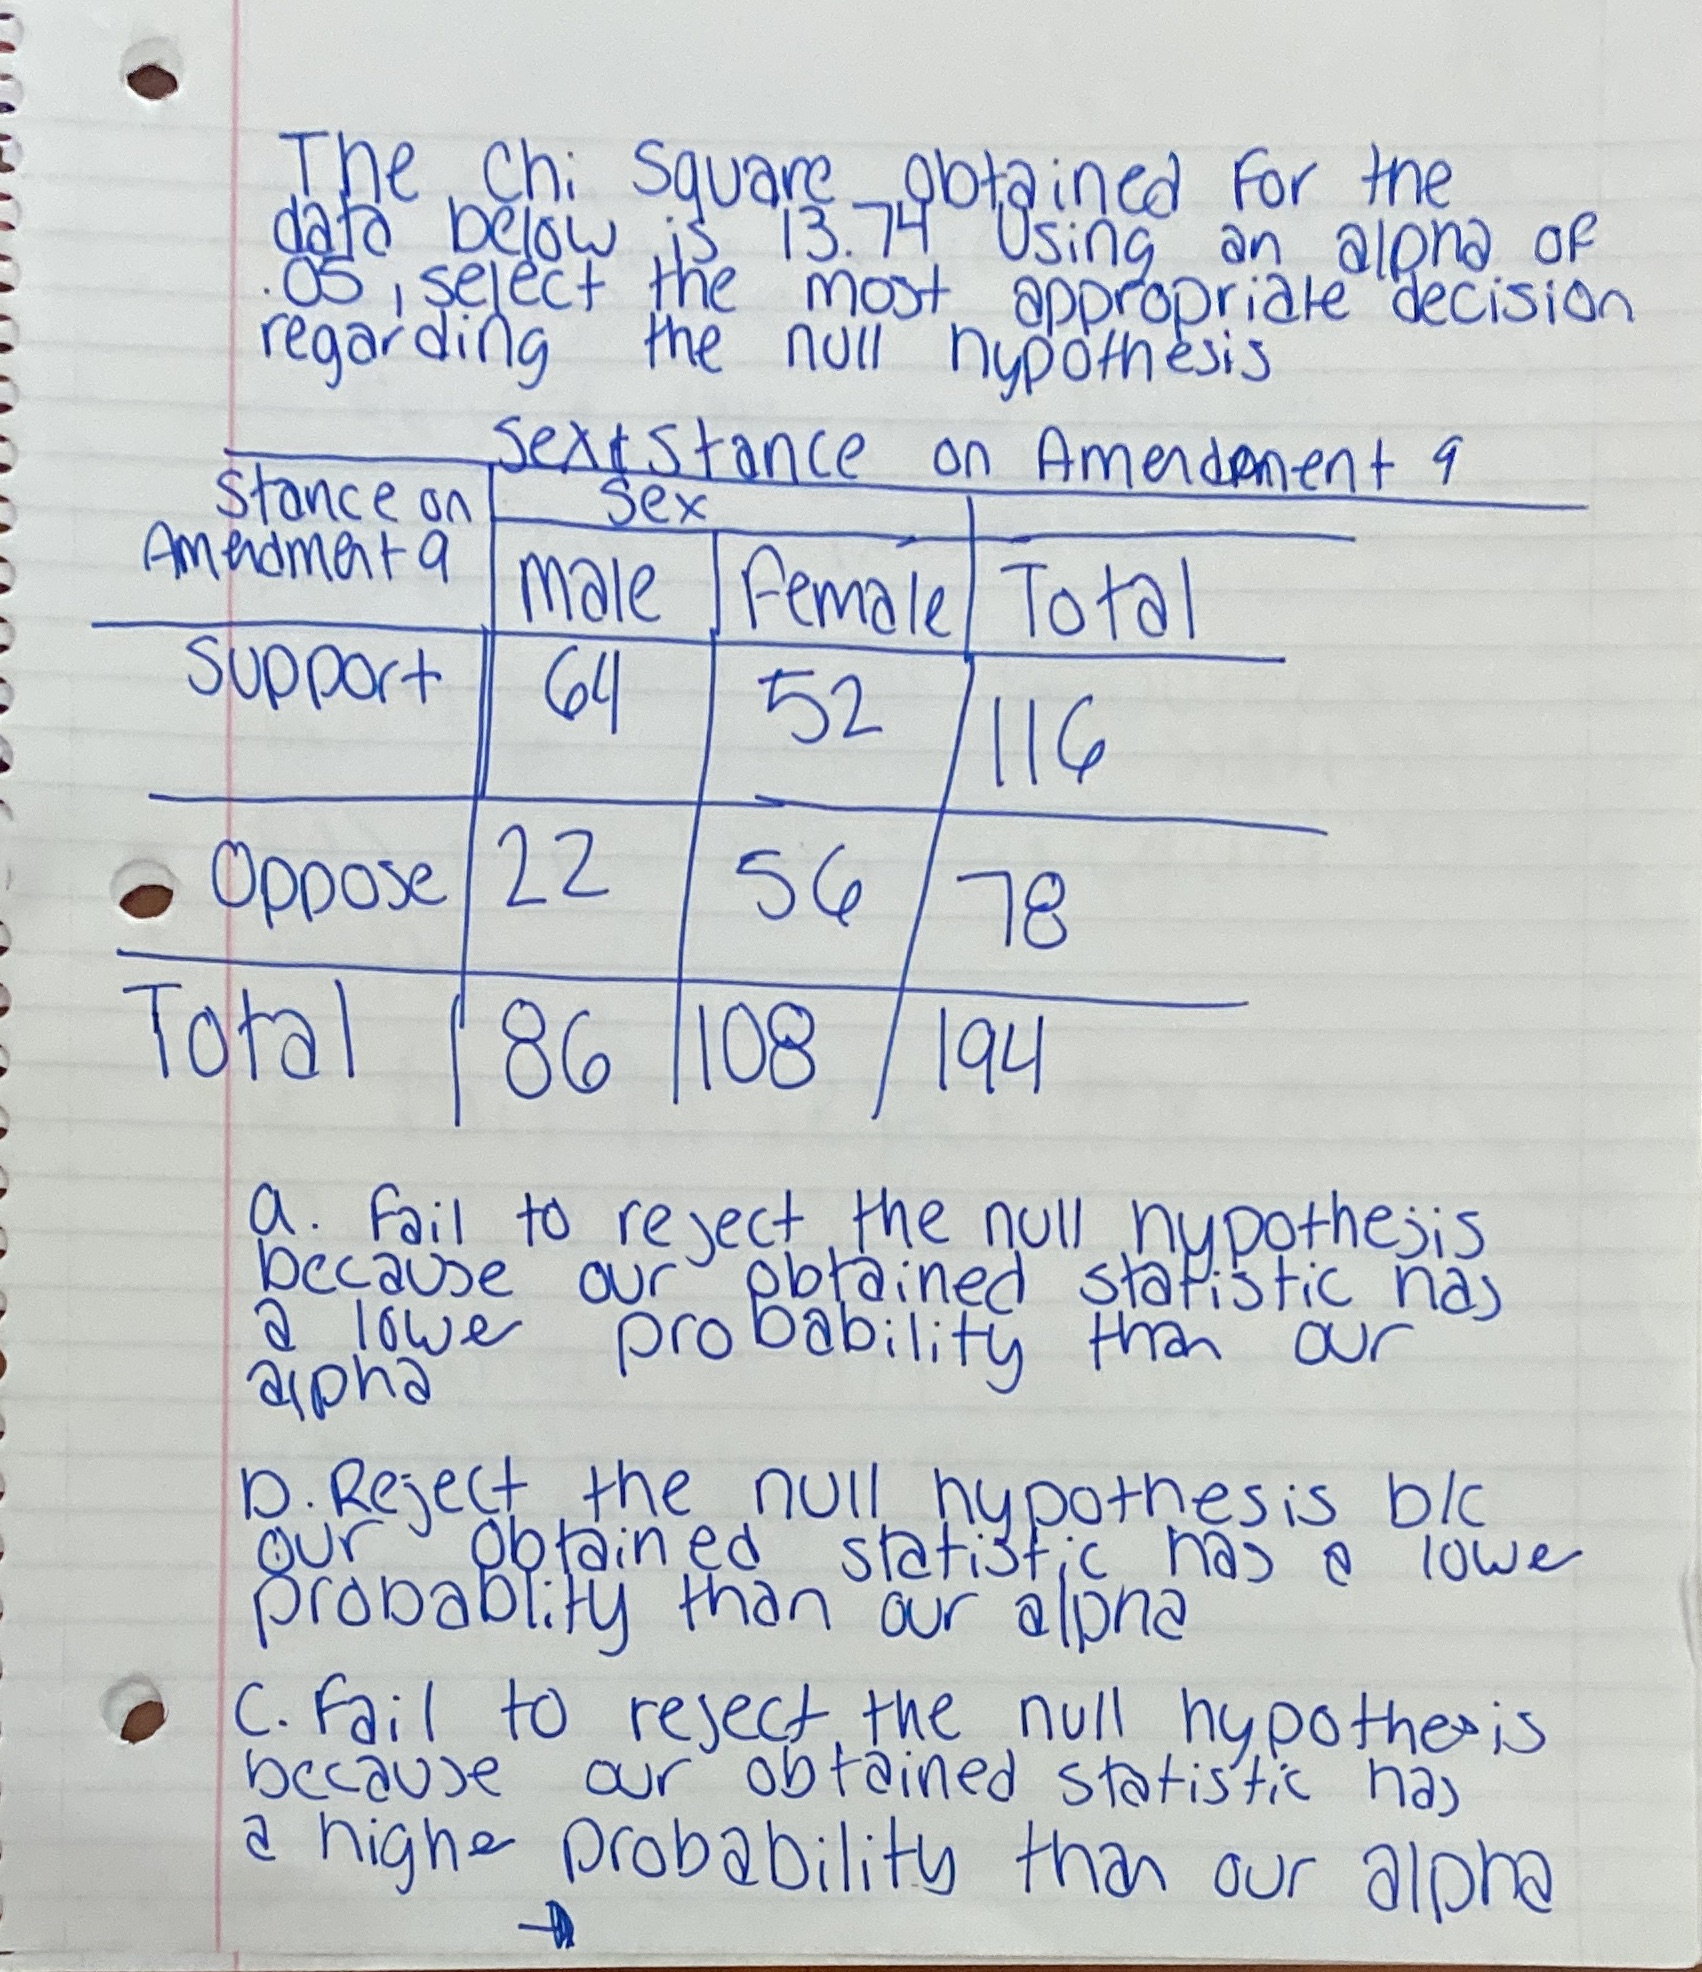 The Chi Square obtained For the
data below is 13.74 Using an alpha of
.05, select the most appropriate decision
regarding the null hypothesis
Sex & Stance on Amendment 9
Stance on Sex
Amendment 9 male Female Total
Support 64 52 116
Oppose 22 56 78
Total 86 108 194
a. Fail to reject the null hypothesis
because our obtained statistic has
a lower probability than our
alpha
b. Reject the null hypothesis b/c
our obtained statistic has a lower
probablity than our alpha
C. Fail to reject the null hypothesis
because our obtained statistic has
a higher probability than our alpha
→